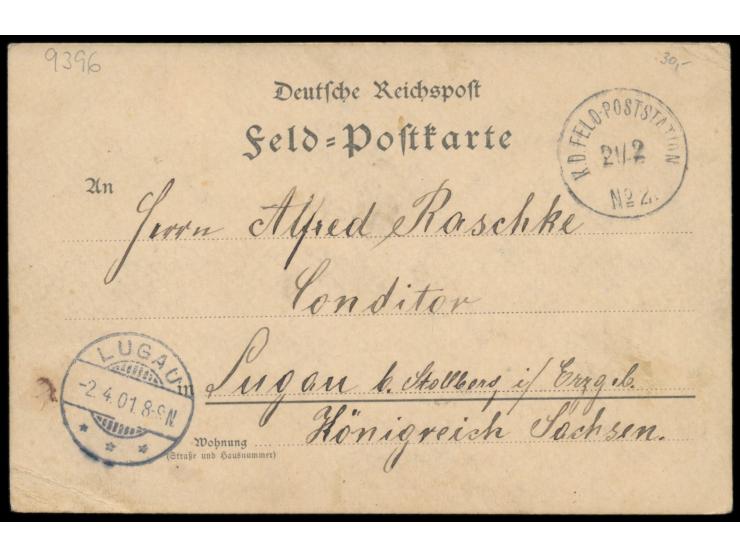 9396
30,-
Deutsche Reichspost
Feld=Postkarte
K.D. FELD-POSTSTATION
21/2
No 2.
An
Herrn Alfred Raschke
Conditor
in Lugau b. Stollberg, i/ Erzgeb.
Königreich Sachsen.
LUGAU
-2.4.01.8-9N
* * *
Wohnung
(Straße und Hausnummer)